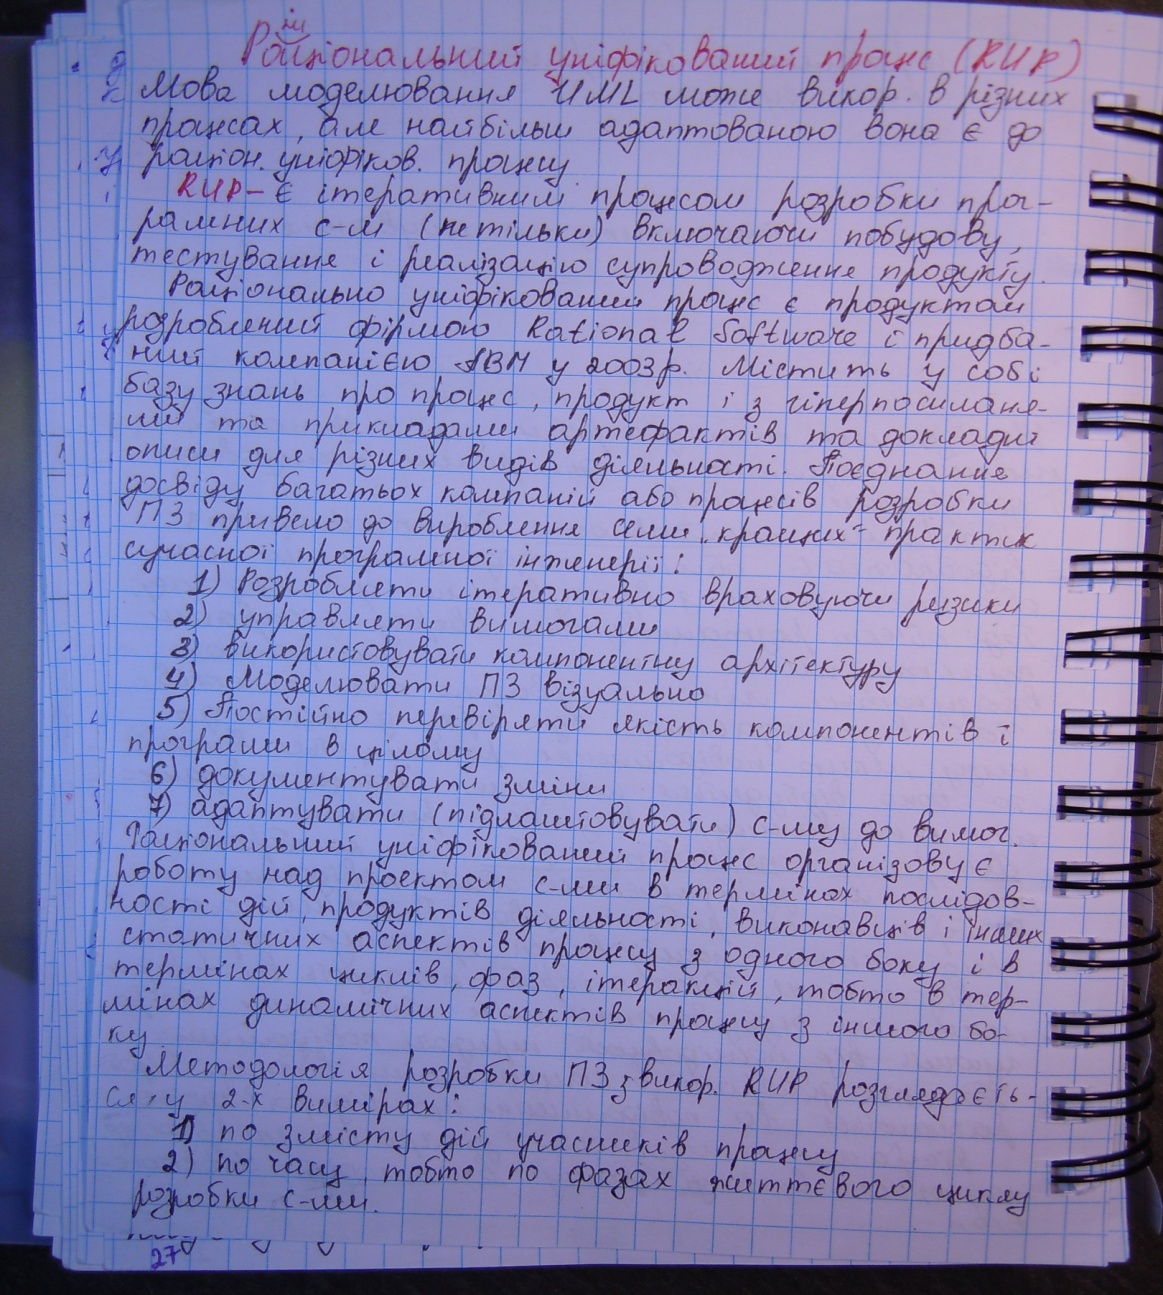 Раціональний уніфікований процес (RUP)
Мова моделювання UML може викор. в різних
процесах, але найбільш адаптованою вона є до
раціон. уніфіков. процесу
RUP - є ітеративним процесом розробки прог-
рамних с-м (нетільки) включаючи побудову,
тестування і реалізацію супроводження продукту.
Раціонально уніфікований процес є продуктом
розроблений фірмою Rational Software і придба-
ний компанією IBM у 2003р. Містить у собі
базу знань про процес, продукт і з гіперпосилання-
ми та прикладами артефактів та докладні
описи для різних видів діяльності. Поєднання
досвіду багатьох компаній або процесів розробки
ПЗ привело до вироблення семи "кращих" практик
сучасної програмної інтенерії:
1) Розробляти ітеративно враховуючи ризики
2) управляти вимогами
3) використовувати компонентну архітектуру
4) Моделювати ПЗ візуально
5) Постійно перевіряти якість компонентів і
програми в цілому
6) документувати зміни
7) адаптувати (підлаштовувати) с-му до вимог.
Раціональний уніфікований процес організовує
роботу над проектом с-ми в термінах послідов-
ності дій, продуктів діяльності, виконавців і інших
статичних аспектів процесу з одного боку і в
термінах циклів, фаз, ітерацій, тобто в тер-
мінах динамічних аспектів процесу з іншого бо-
ку
Методологія розробки ПЗ з викор. RUP розглядаєть-
ся у 2-х вимірах:
1) по змісту дій учасників процесу
2) по часу, тобто по фазах життєвого циклу
розробки с-ми.
27